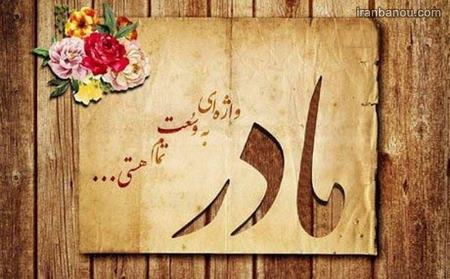 iranbanou.com
مادر
واژه‌ای
به وسعت
تمام
هستی...